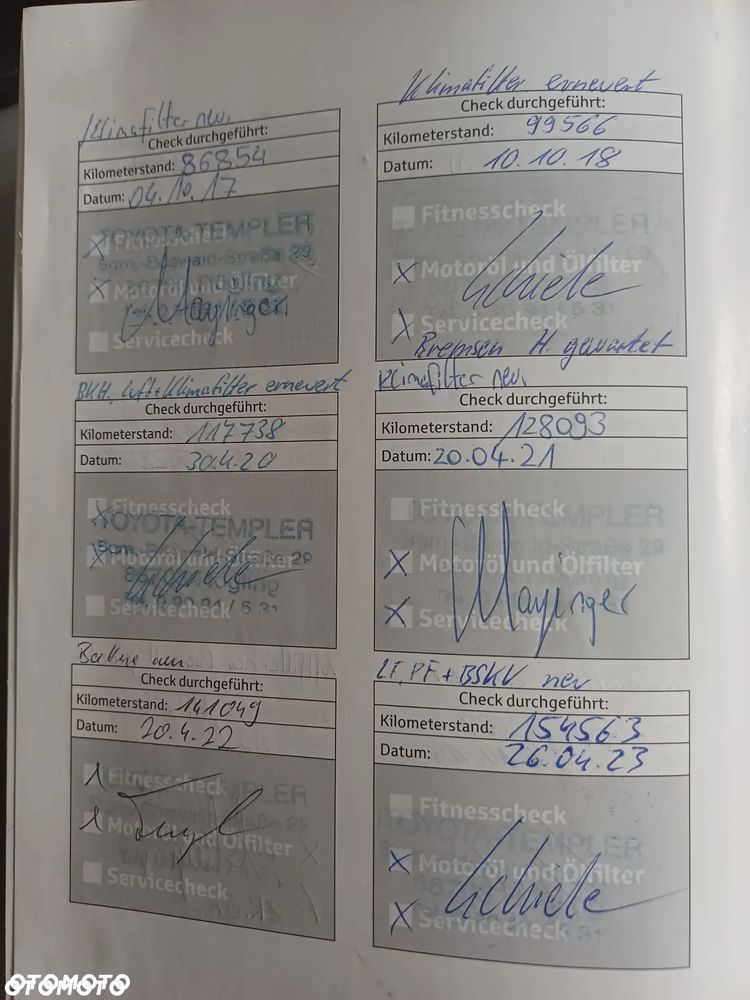 Klimafilter neu.
Check durchgeführt:
Kilometerstand: 86854
Datum: 04.10.17
TOYOTA-TEMPLER
Fitnesscheck
29
Motoröl
Mayinger
Servicecheck
Klimafilter erneuert
Check durchgeführt:
Kilometerstand: 99566
Datum: 10.10.18
Fitnesscheck
Motoröl und Ölfilter
Servicecheck
Bremsen H. gewartet
BKH, Luft+Klimafilter erneuert
Check durchgeführt:
Kilometerstand: 117738
Datum: 30.4.20
Fitnesscheck
TOYOTA-TEMPLER
Motoröl und Ölfilter
Servicecheck
Klimafilter neu.
Check durchgeführt:
Kilometerstand: 128093
Datum: 20.04.21
Fitnesscheck
Motoröl und Ölfilter
Mayinger
Servicecheck
Check durchgeführt:
Kilometerstand: 141049
Datum: 20.4.22
Fitnesscheck
Motoröl und Ölfilter
Servicecheck
LF, PF + BSKV neu
Check durchgeführt:
Kilometerstand: 154563
Datum: 26.04.23
Fitnesscheck
TOYOTA-TEMPLER
Motoröl und Ölfilter
Servicecheck
OTOMOTO